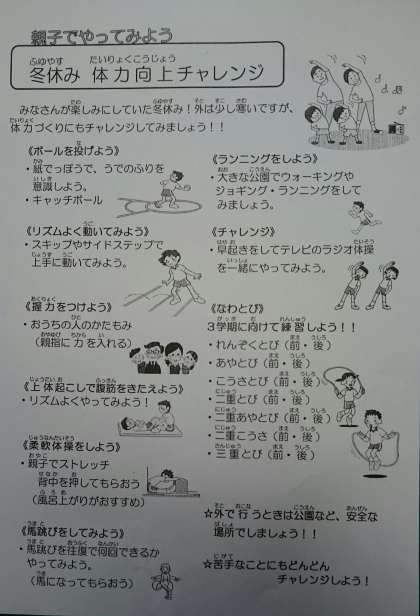 親子でやってみよう
冬休み 体力向上チャレンジ
みなさんが楽しみにしていた冬休み！外は少し寒いですが、
体力づくりにもチャレンジしてみましょう！！
《ボールを投げよう》
・紙でっぽうで、うでのふりを
意識しよう。
・キャッチボール
《リズムよく動いてみよう》
・スキップやサイドステップで
上手に動いてみよう。
《握力をつけよう》
・おうちの人のかたもみ
（親指に力を入れる）
《上体起こしで腹筋をきたえよう》
・リズムよくやってみよう！
《柔軟体操をしよう》
・親子でストレッチ
背中を押してもらおう
（風呂上がりがおすすめ）
《馬跳びをしてみよう》
・馬跳びを往復で何回できるか
やってみよう。
（馬になってもらおう）
《ランニングをしよう》
・大きな公園でウォーキングや
ジョギング・ランニングをして
みましょう。
《チャレンジ》
・早起きをしてテレビのラジオ体操
を一緒にやってみよう。
《なわとび》
３学期に向けて練習しよう！！
・れんぞくとび（前・後）
・あやとび（前・後）
・こうさとび（前・後）
・二重とび（前・後）
・二重あやとび（前・後）
・二重こうさ（前・後）
・三重とび（前・後）
☆外で行うときは公園など、安全な
場所でしましょう！！
☆苦手なことにもどんどん
チャレンジしよう！